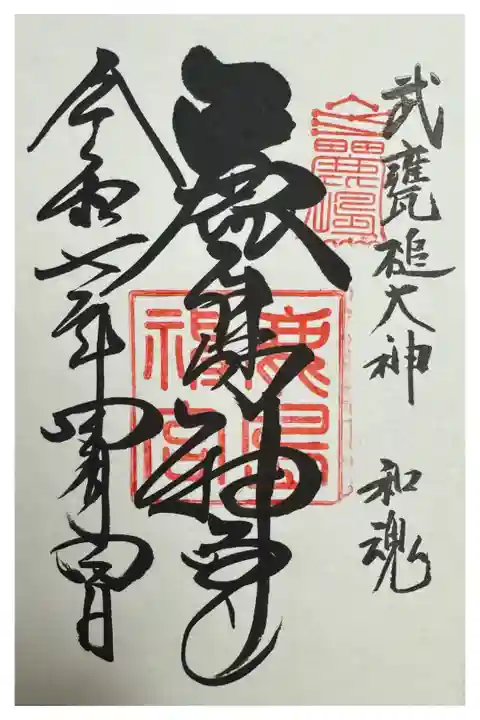 武甕槌大神 和魂
鹿島神宮
鹿島神宮
令和七年四月